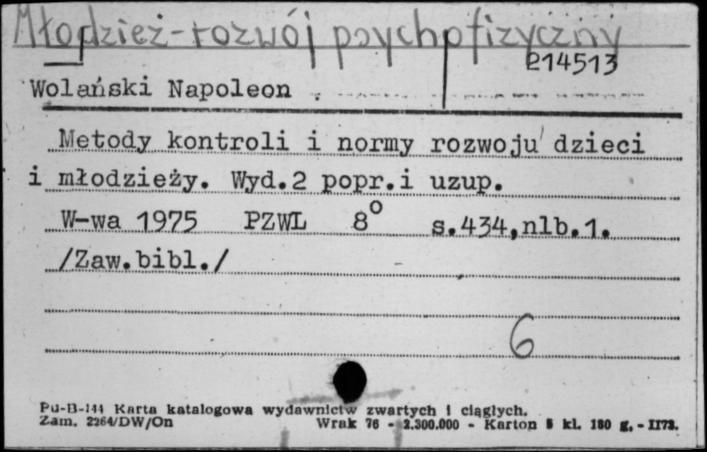 Młodzież-rozwój psychofizyczny
214513
Wolański Napoleon
Metody kontroli i normy rozwoju dzieci
i młodzieży. Wyd.2 popr.i uzup.
W-wa 1975 PZWL 8° s.434,nlb.1.
/Zaw.bibl./
6
Pu-B-144 Karta katalogowa wydawnictw zwartych i ciągłych.
Zam. 2264/DW/On Wrak 76 - 2.300.000 - Karton kl. 180 g. -